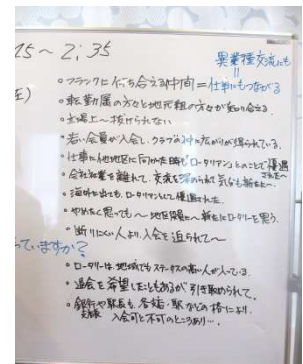 15〜2:35
異業種交流にも
=
・フランクに付き合える仲間=仕事にもつながる
・転勤属の方々と地元組の方々が交わり合える
立場上〜抜けられない
・若い会員が入会し、クラブの和の広がりが得られている。
・仕事に他地区に向かった時もロータリアンとのことで優遇された〜
・会社社業を離れて、交流を深められて気分も新たに〜
・海外に出ても、ロータリアンとして優遇された。
・やめたと思っても〜地区役員に〜新たにロータリーを思う。
・断りにくい人より、入会を迫られて〜
っていますか?
・ロータリーは、地域でもステータスの高い人が入っている。
・退会を希望したこともあるが引き取められて。
・銀行や駅長も、各
支店・駅などの格により、
入会可と不可のところあり…。